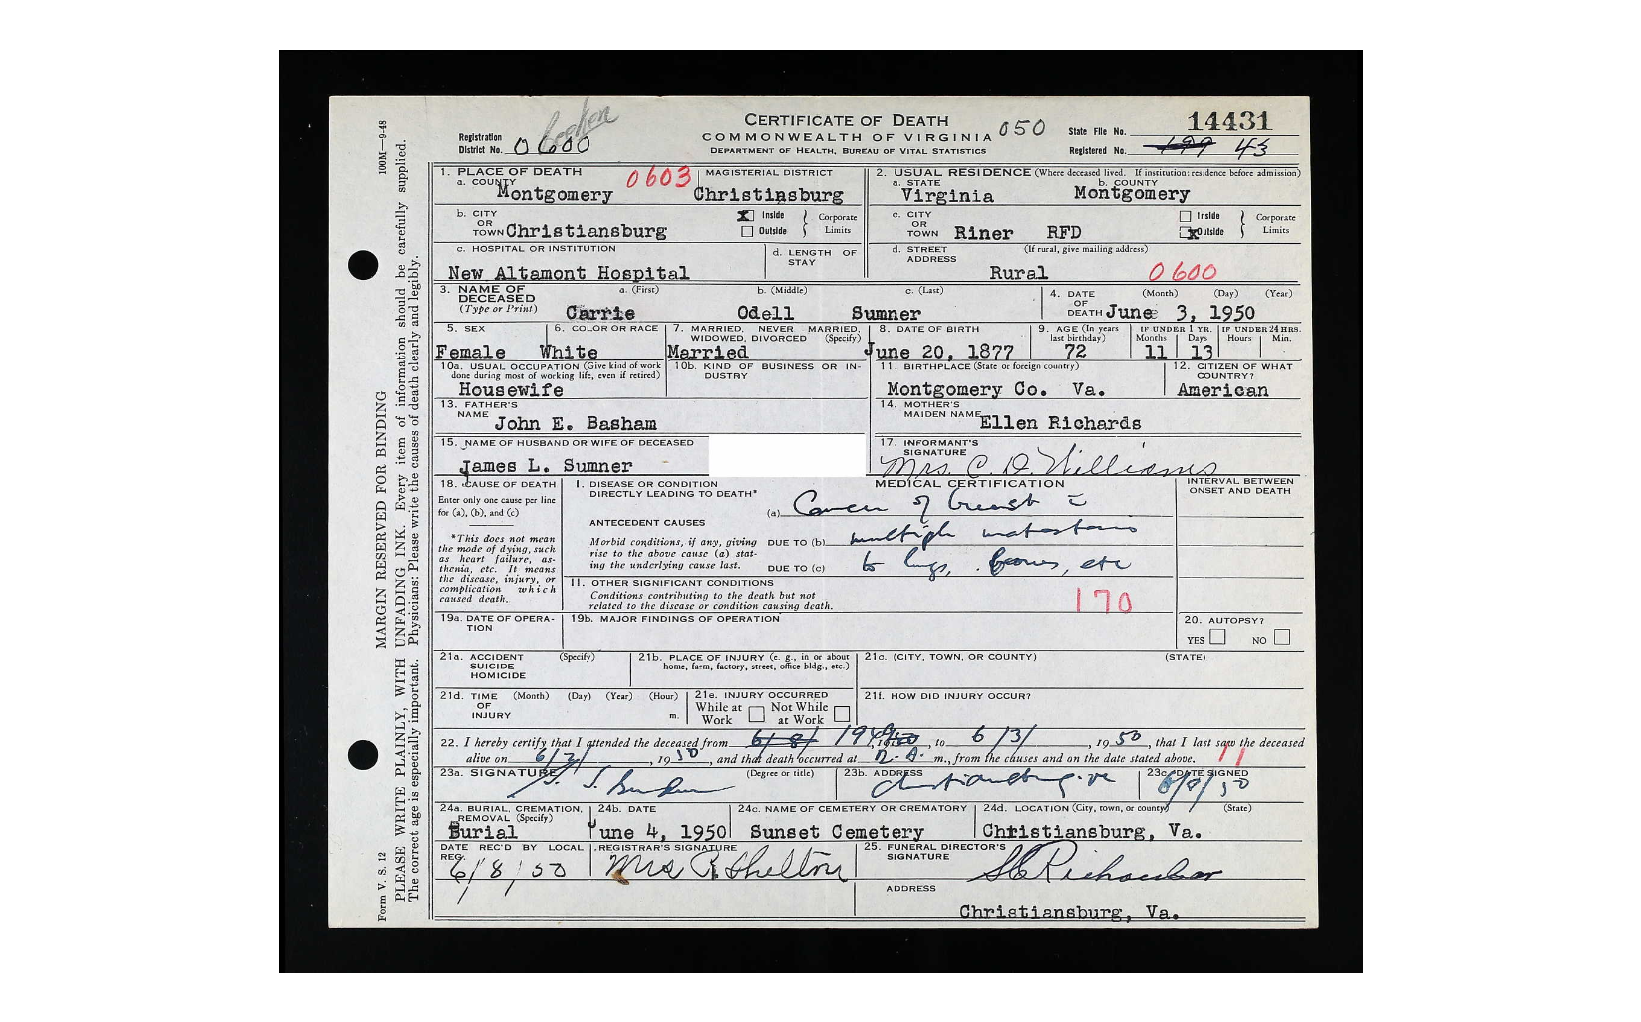 CERTIFICATE OF DEATH
COMMONWEALTH OF VIRGINIA 050
DEPARTMENT OF HEALTH, BUREAU OF VITAL STATISTICS
Registration District No. 0600
State File No. 14431
Registered No. 199 43
1. PLACE OF DEATH
a. COUNTY Montgomery 0603
MAGISTERIAL DISTRICT Christinsburg
2. USUAL RESIDENCE (Where deceased lived. If institution: residence before admission)
a. STATE Virginia b. COUNTY Montgomery
b. CITY OR TOWN Christiansburg
X Inside Outside Corporate Limits
c. CITY OR TOWN Riner RFD
Inside X Outside Corporate Limits
c. HOSPITAL OR INSTITUTION
New Altamont Hospital
d. LENGTH OF STAY
d. STREET ADDRESS (If rural, give mailing address)
Rural 0600
3. NAME OF DECEASED (Type or Print)
a. (First) b. (Middle) c. (Last)
Carrie Odell Sumner
4. DATE OF DEATH (Month) (Day) (Year)
June 3, 1950
5. SEX
Female
6. COLOR OR RACE
White
7. MARRIED, NEVER MARRIED, WIDOWED, DIVORCED (Specify)
Married
8. DATE OF BIRTH
June 20, 1877
9. AGE (In years last birthday)
72
IF UNDER 1 YR. Months Days
11 13
IF UNDER 24 HRS. Hours Min.
10a. USUAL OCCUPATION (Give kind of work done during most of working life, even if retired)
Housewife
10b. KIND OF BUSINESS OR INDUSTRY
11. BIRTHPLACE (State or foreign country)
Montgomery Co. Va.
12. CITIZEN OF WHAT COUNTRY?
American
13. FATHER'S NAME
John E. Basham
14. MOTHER'S MAIDEN NAME
Ellen Richards
15. NAME OF HUSBAND OR WIFE OF DECEASED
James L. Sumner
17. INFORMANT'S SIGNATURE
Mrs. C. D. Williams
18. CAUSE OF DEATH
Enter only one cause per line for (a), (b), and (c)
*This does not mean the mode of dying, such as heart failure, asthenia, etc. It means the disease, injury, or complication which caused death.
MEDICAL CERTIFICATION
INTERVAL BETWEEN ONSET AND DEATH
I. DISEASE OR CONDITION DIRECTLY LEADING TO DEATH*
(a) Cancer of breast c
ANTECEDENT CAUSES
Morbid conditions, if any, giving rise to the above cause (a) stating the underlying cause last.
DUE TO (b) multiple metastasis
DUE TO (c) to lungs, bones, etc
II. OTHER SIGNIFICANT CONDITIONS
Conditions contributing to the death but not related to the disease or condition causing death.
170
19a. DATE OF OPERATION
19b. MAJOR FINDINGS OF OPERATION
20. AUTOPSY?
YES NO
21a. ACCIDENT SUICIDE HOMICIDE (Specify)
21b. PLACE OF INJURY (e. g., in or about home, farm, factory, street, office bldg., etc.)
21c. (CITY, TOWN, OR COUNTY) (STATE)
21d. TIME OF INJURY (Month) (Day) (Year) (Hour) m.
21e. INJURY OCCURRED
While at Work Not While at Work
21f. HOW DID INJURY OCCUR?
22. I hereby certify that I attended the deceased from 6/8/ 1949, to 6/3/, 1950, that I last saw the deceased
alive on 6/2/, 1950, and that death occurred at m., from the causes and on the date stated above. 11
23a. SIGNATURE (Degree or title)
23b. ADDRESS
Christiansburg, Va
23c. DATE SIGNED
24a. BURIAL, CREMATION, REMOVAL (Specify)
Burial
24b. DATE
June 4, 1950
24c. NAME OF CEMETERY OR CREMATORY
Sunset Cemetery
24d. LOCATION (City, town, or county) (State)
Christiansburg, Va.
DATE REC'D BY LOCAL REG.
6/8/50
REGISTRAR'S SIGNATURE
Mrs R Shelton
25. FUNERAL DIRECTOR'S SIGNATURE
ADDRESS
Christiansburg, Va.
100M—9-48
MARGIN RESERVED FOR BINDING
PLEASE WRITE PLAINLY, WITH UNFADING INK. Every item of information should be carefully supplied.
The correct age is especially important. Physicians: Please write the causes of death clearly and legibly.
Form V. S. 12